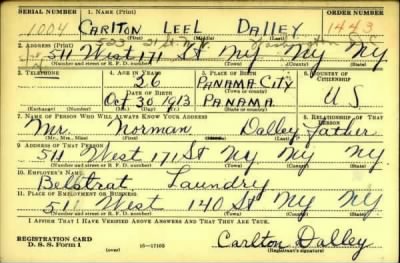 SERIAL NUMBER 1. NAME (Print) ORDER NUMBER
1004 CARLTON LEEL DALLEY 1443
(First) (Middle) (Last)
2. ADDRESS (Print)
511 West 171 St Ny Ny Ny
(Number and street or R. F. D. number) (Town) (County) (State)
3. TELEPHONE 4. AGE IN YEARS 5. PLACE OF BIRTH 6. COUNTRY OF CITIZENSHIP
26 PANAMA CITY
DATE OF BIRTH (Town or county)
Oct 30 1913 PANAMA U.S.
(Exchange) (Number) (Mo.) (Day) (Yr.) (State or country)
7. NAME OF PERSON WHO WILL ALWAYS KNOW YOUR ADDRESS 8. RELATIONSHIP OF THAT PERSON
Mr. Norman Dalley Father
(Mr., Mrs., Miss) (First) (Middle) (Last)
9. ADDRESS OF THAT PERSON
511 West 171 St Ny Ny Ny
(Number and street or R. F. D. number) (Town) (County) (State)
10. EMPLOYER'S NAME
Belstrat Laundry
11. PLACE OF EMPLOYMENT OR BUSINESS
511 West 140 St Ny Ny
(Number and street or R. F. D. number) (Town) (County) (State)
I AFFIRM THAT I HAVE VERIFIED ABOVE ANSWERS AND THAT THEY ARE TRUE.
REGISTRATION CARD
D. S. S. Form 1 16—17105 Carlton Dalley
(over)